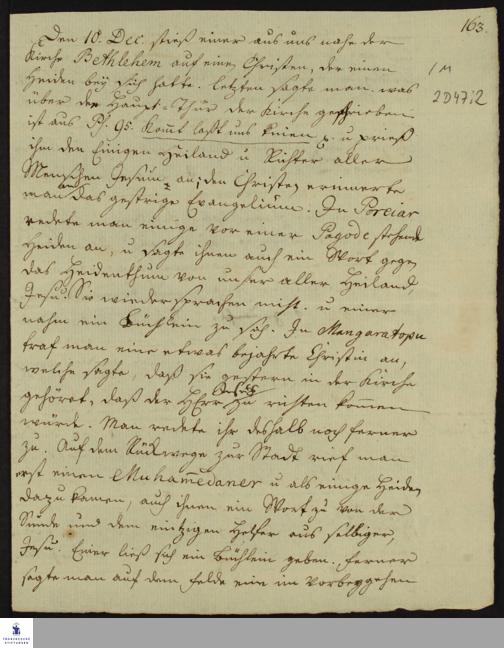 163.
Den 10. Dec. stieß einer aus uns nahe der
Kirche Bethlehem auf einen Christen, der einen
Heiden bey sich hatte. Letztern sagte man was
1 M
2 D 47:2
über der Haupt-Thür der Kirche geschrieben
ist aus Ps. 95. Komt laßt uns knien p. u prieß
ihm den Einigen Heiland u Richter aller
Menschen Jesum an; den Christen erinnerte
man an das gestrige Evangelium. In Poreiar
redete man einige vor einer Pagode stehende
Heiden an, u sagte ihnen auch ein Wort gegen
das Heidenthum von unser aller Heiland,
Jesu. Sie wiedersprachen nicht. u einer
nahm ein Büchlein zu sich. In Mangaratopu
traf man eine etwas bejahrte Christin an,
welche sagte, daß sie gestern in der Kirche
gehöret, daß der HErr Jesus zu richten kommen
würde. Man redete ihr deshalb noch ferner
zu. Auf dem Rückwege zur Stadt rief man
erst einen Muhamedaner u als einige Heiden
dazu kamen, auch ihnen ein Wort zu von der
Sünde und dem eintzigen Helfer aus selbiger,
Jesu. Einer ließ sich ein Büchlein geben. Ferner
sagte man auf dem Felde eine im vorbeygehen
FRANCKESCHE
STIFTUNGEN